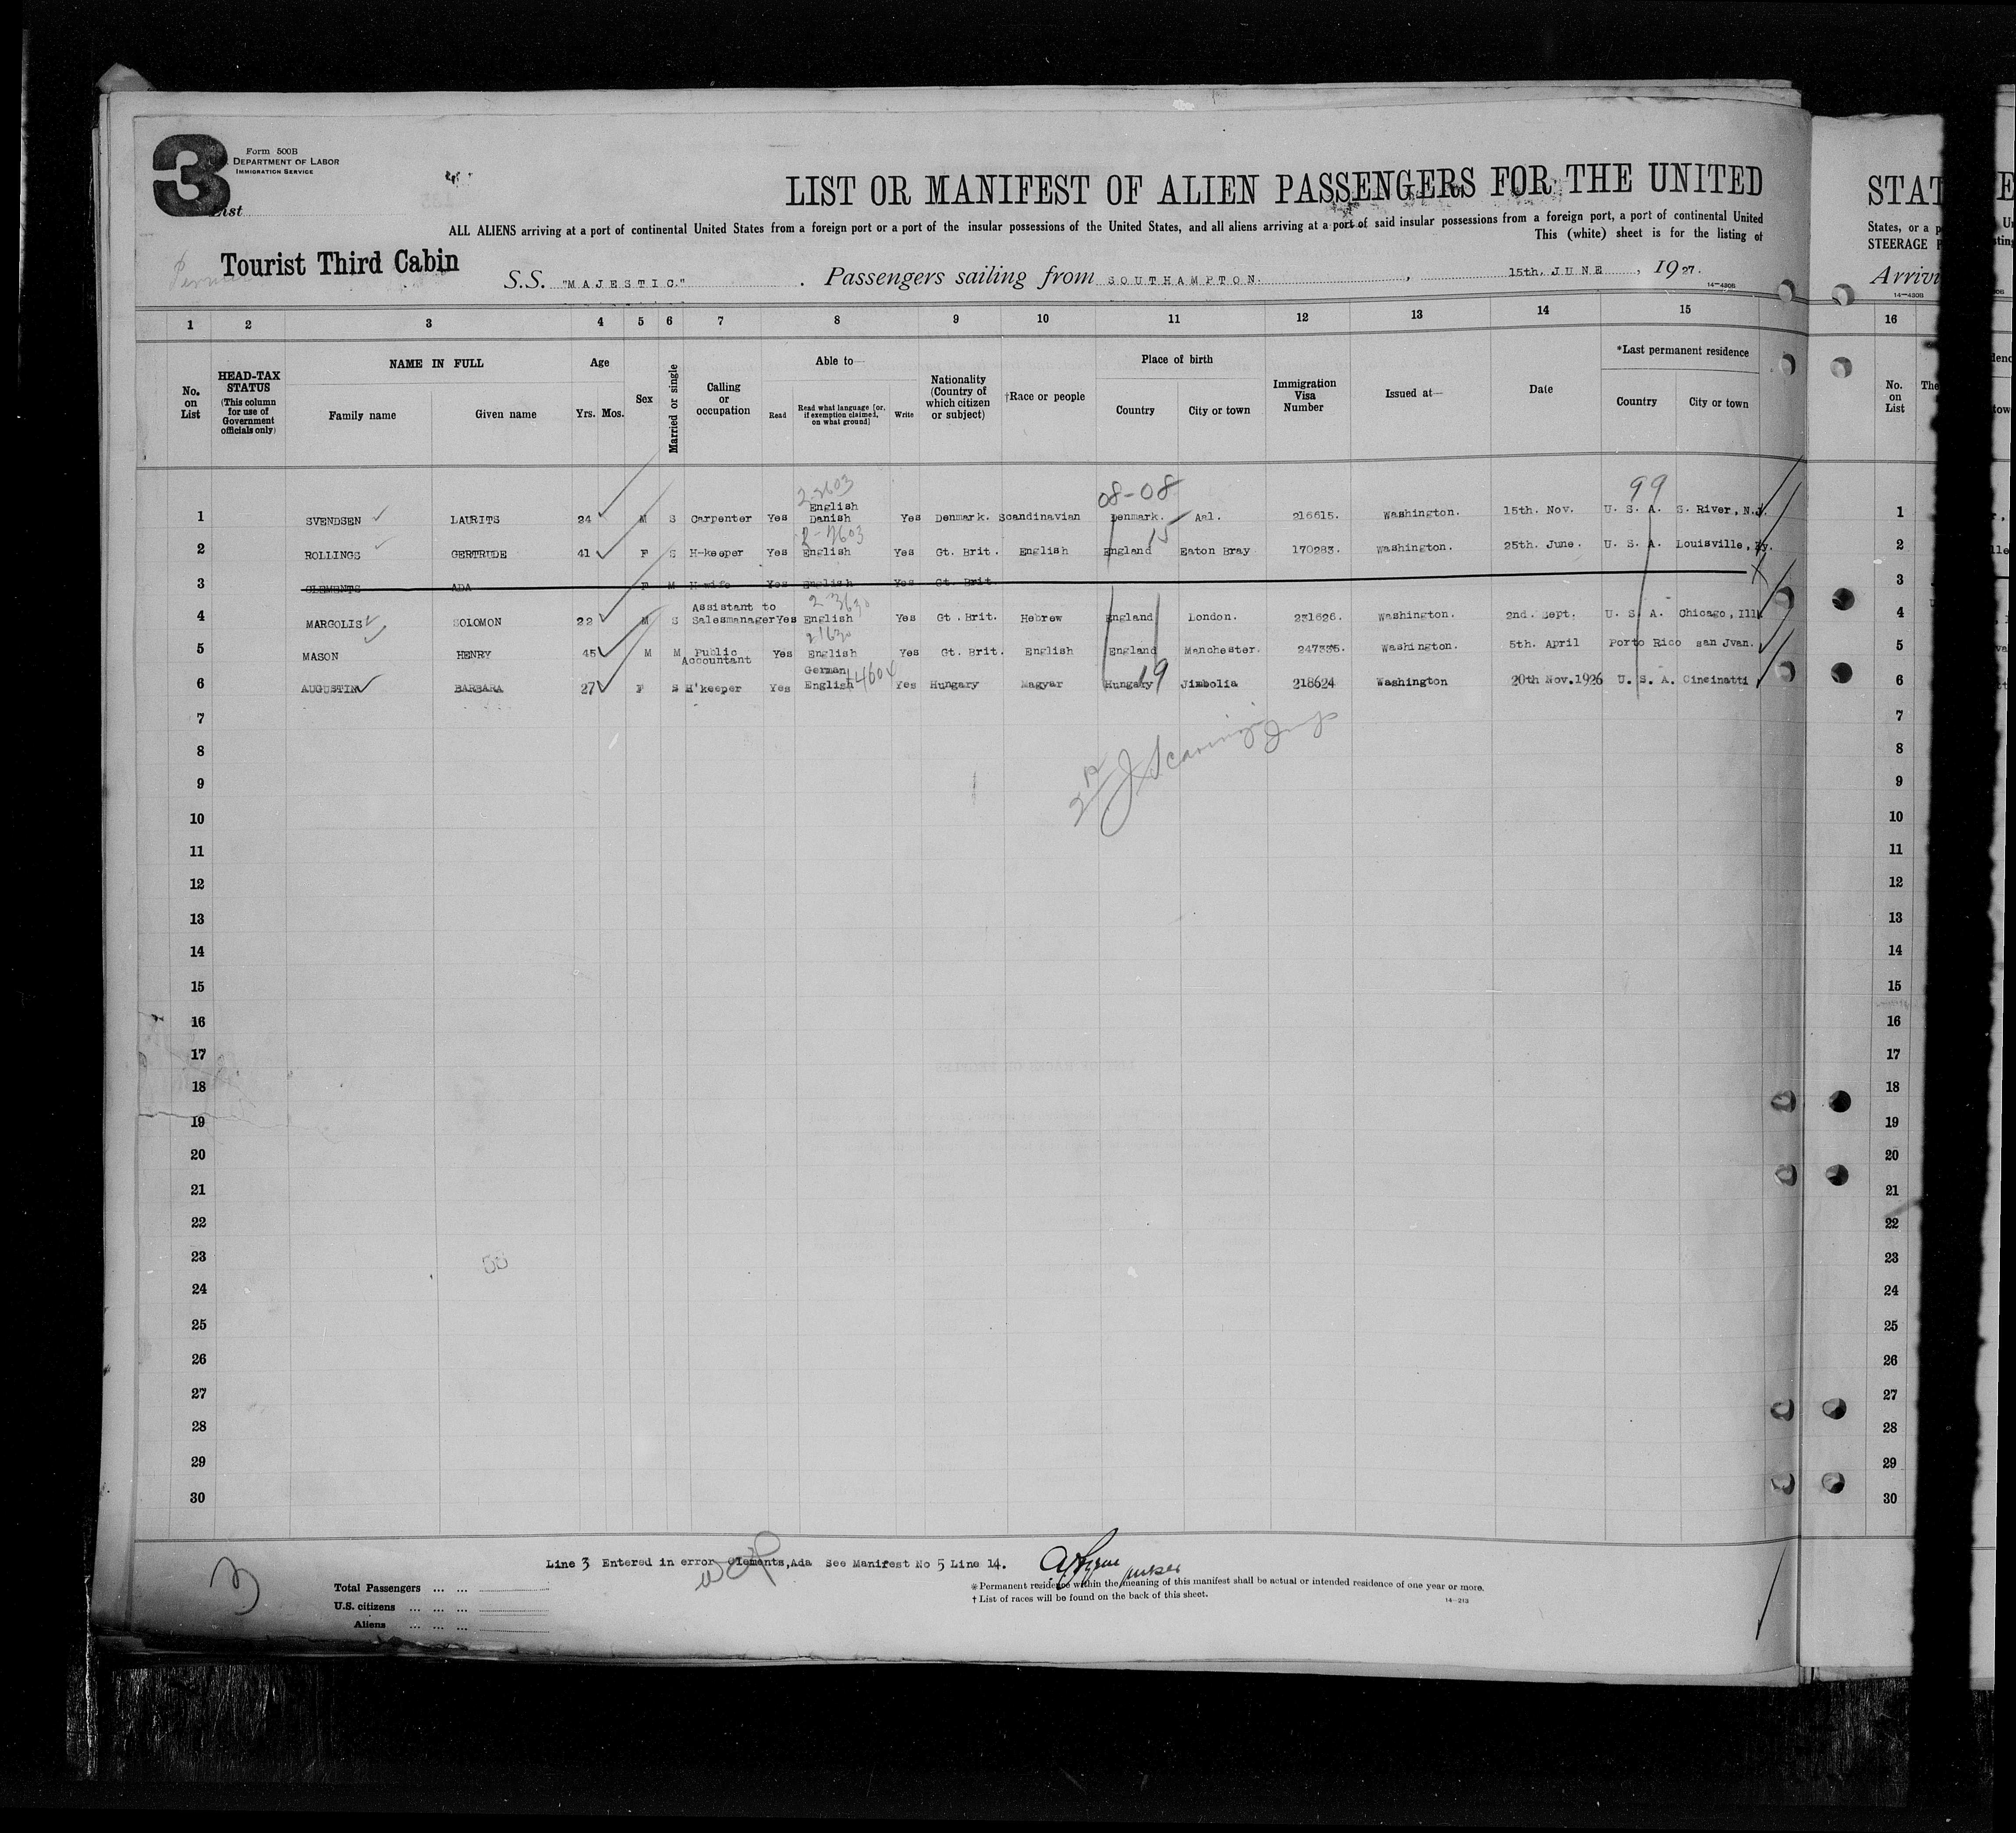 3
Form 500B
DEPARTMENT OF LABOR
IMMIGRATION SERVICE
List
LIST OR MANIFEST OF ALIEN PASSENGERS FOR THE UNITED
ALL ALIENS arriving at a port of continental United States from a foreign port or a port of the insular possessions of the United States, and all aliens arriving at a port of said insular possessions from a foreign port, a port of continental United
This (white) sheet is for the listing of
Tourist Third Cabin
S.S. "MAJESTIC." Passengers sailing from SOUTHAMPTON, 15th. JUNE, 1927.
14-430B
1 2 3 4 5 6 7 8 9 10 11 12 13 14 15
No. on List
HEAD-TAX STATUS (This column for use of Government officials only)
NAME IN FULL
Family name Given name
Age
Yrs. Mos.
Sex
Married or single
Calling or occupation
Able to—
Read Read what language [or, if exemption claimed, on what ground] Write
Nationality (Country of which citizen or subject)
†Race or people
Place of birth
Country City or town
Immigration Visa Number
Issued at—
Date
*Last permanent residence
Country City or town
2-2603 08-08 99
1 SVENDSEN LAURITS 24 M S Carpenter Yes English Danish Yes Denmark. Scandinavian Denmark. Aal. 216615. Washington. 15th. Nov. U. S. A. S. River, N.J.
2 ROLLINGS GERTRUDE 41 F S H-keeper Yes English Yes Gt. Brit. English England 15 Eaton Bray 170283. Washington. 25th. June. U. S. A. Louisville, Ky.
3 CLEMENTS ADA F M H-wife Yes English Yes Gt. Brit.
4 MARGOLIS SOLOMON 22 M S Assistant to Salesmanager Yes English Yes Gt. Brit. Hebrew England London. 231626. Washington. 2nd. Sept. U. S. A. Chicago, Ill.
5 MASON HENRY 45 M M Public Accountant Yes English Yes Gt. Brit. English England Manchester. 247335. Washington. 5th. April Porto Rico san Jvan.
6 AUGUSTIN BARBARA 27 F S H'keeper Yes German English Yes Hungary Magyar Hungary 19 Jimbolia 218624 Washington 20th Nov. 1926 U. S. A. Cincinatti
7
8
9
10
11
12
13
14
15
16
17
18
19
20
21
22
23
24
25
26
27
28
29
30
Line 3 Entered in error Clements, Ada See Manifest No 5 Line 14.
purser
Total Passengers ... ...
U.S. citizens ... ... ...
Aliens ... ... ...
* Permanent residence within the meaning of this manifest shall be actual or intended residence of one year or more.
† List of races will be found on the back of this sheet.
14-213
STAT
States, or a p
STEERAGE P
14-430B
16
No. on List
The
1
2
3
4
5
6
7
8
9
10
11
12
13
14
15
16
17
18
19
20
21
22
23
24
25
26
27
28
29
30